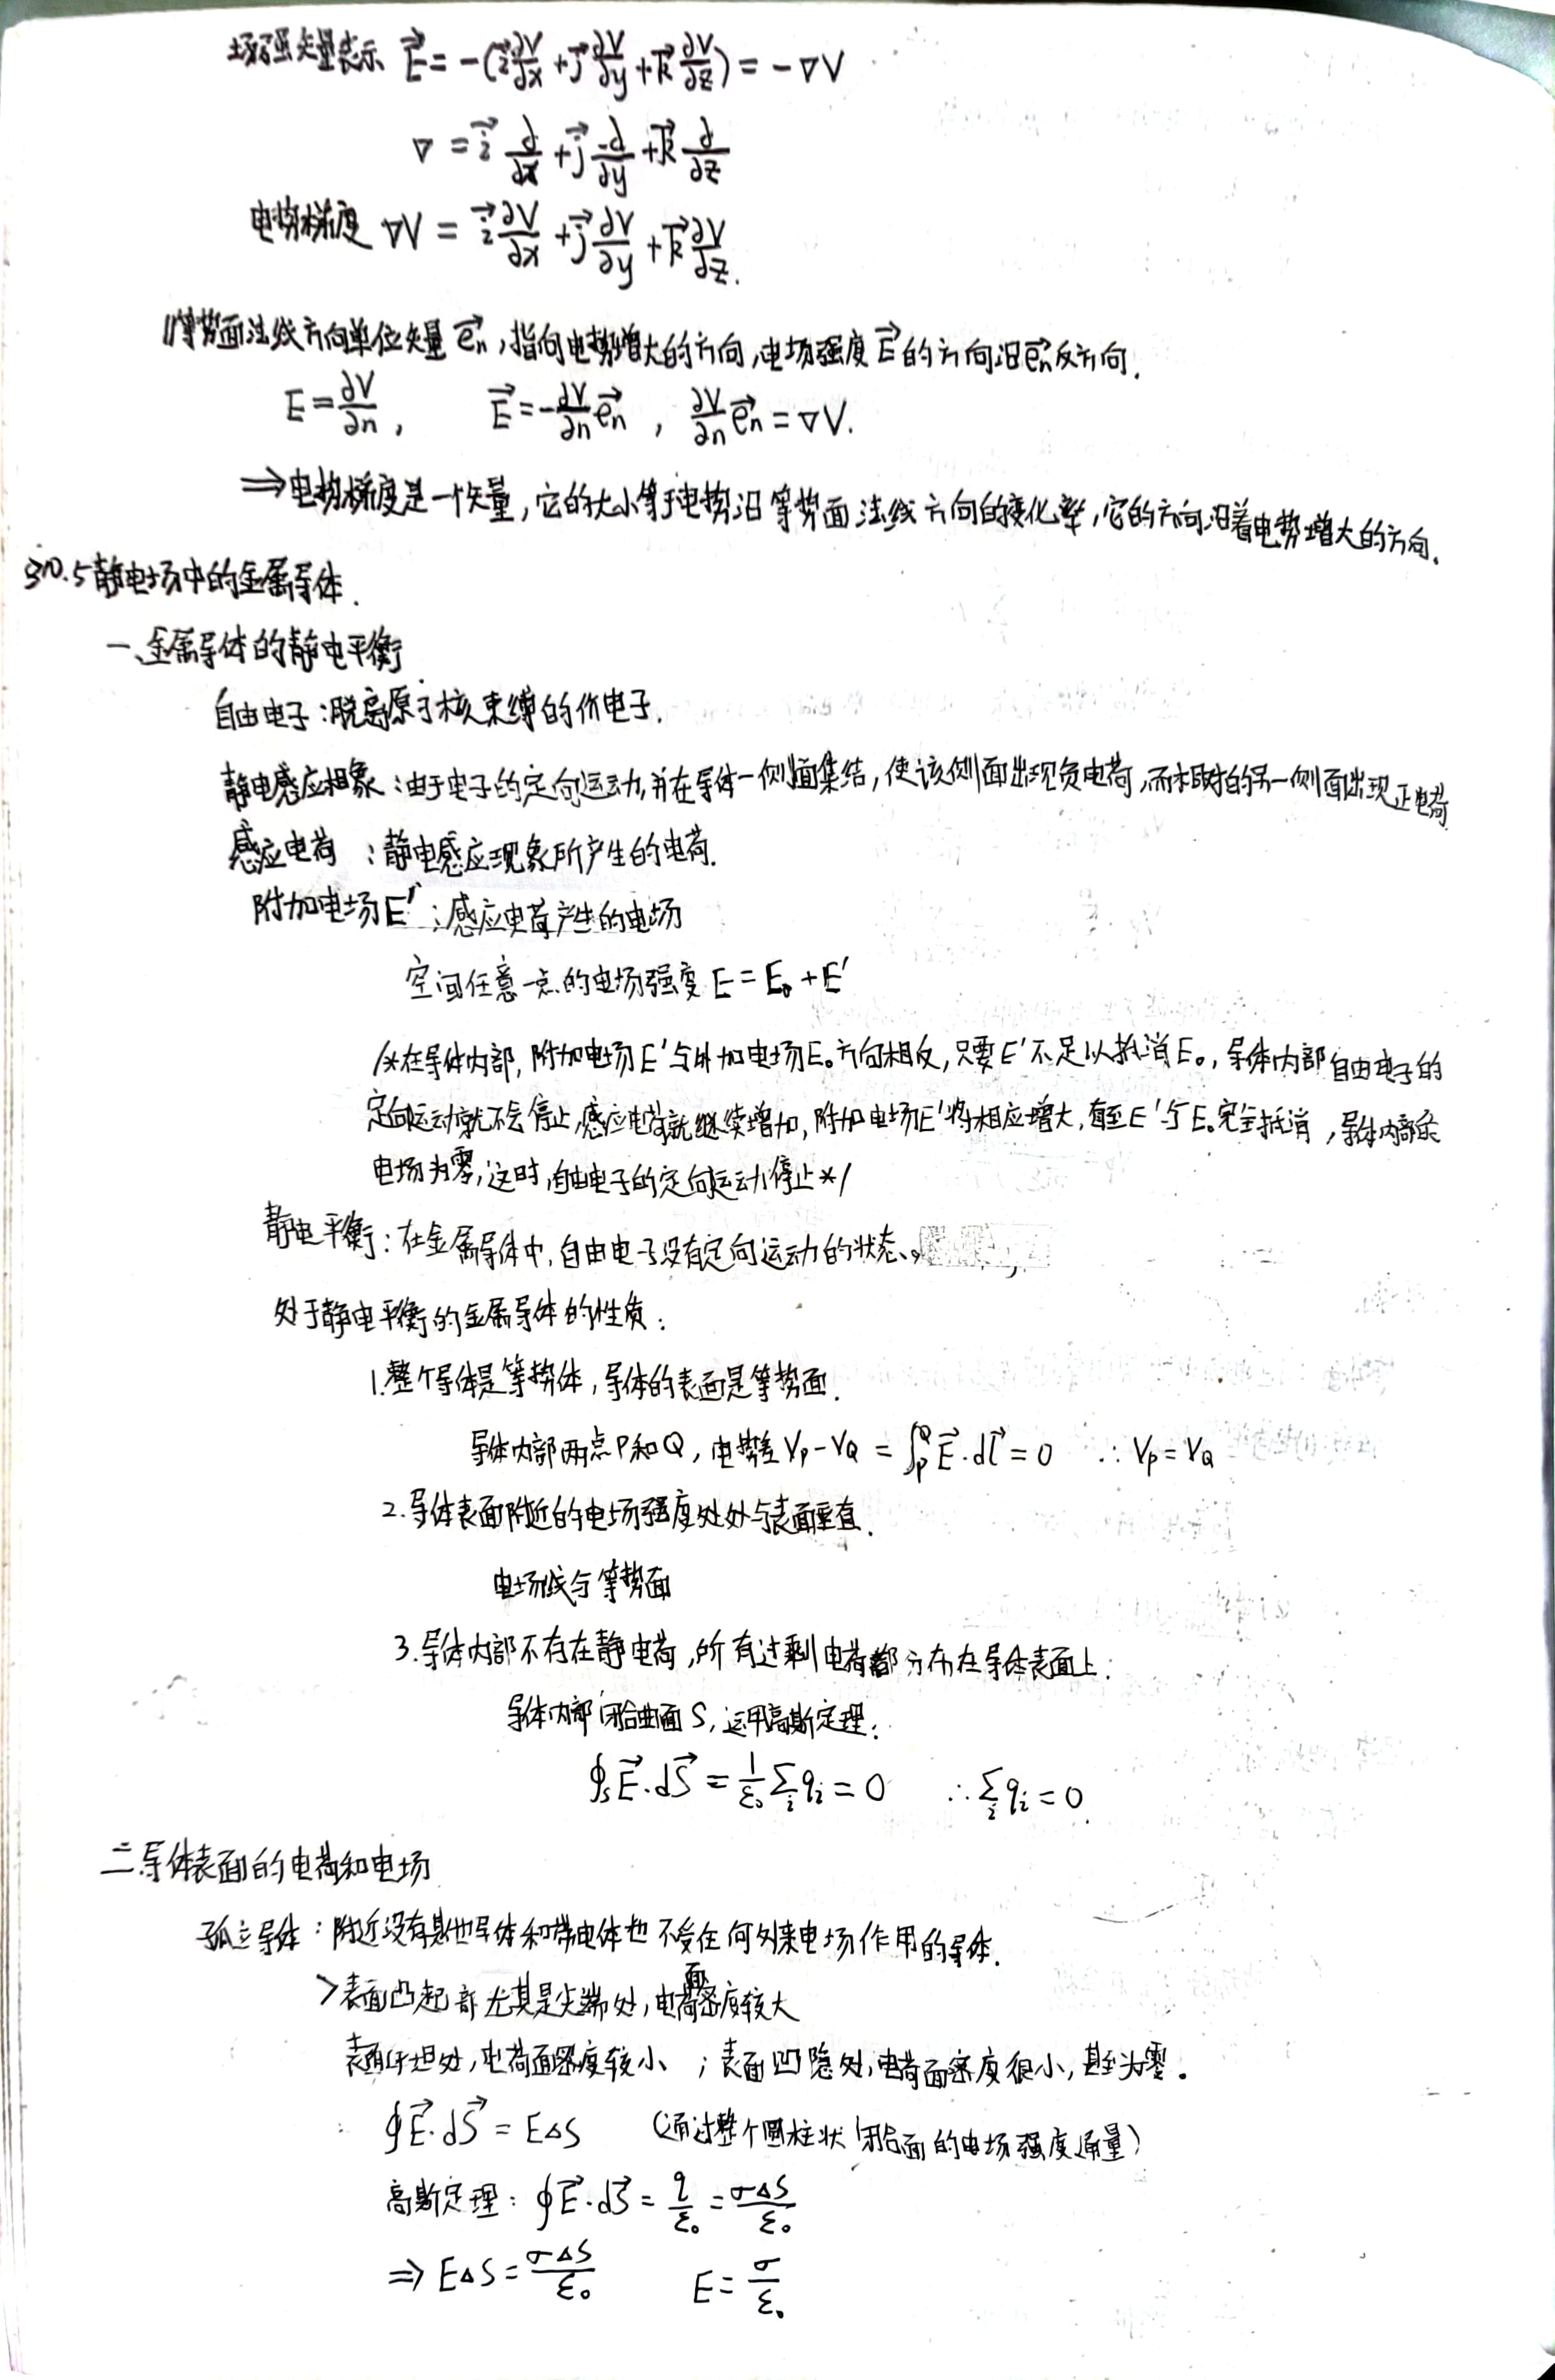 场强矢量表示 E⃗ = -(i⃗ ∂V/∂x + j⃗ ∂V/∂y + k⃗ ∂V/∂z) = -∇V
∇ = i⃗ ∂/∂x + j⃗ ∂/∂y + k⃗ ∂/∂z
电势梯度 ∇V = i⃗ ∂V/∂x + j⃗ ∂V/∂y + k⃗ ∂V/∂z.
等势面法线方向单位矢量 e⃗n, 指向电势增大的方向, 电场强度 E⃗ 的方向沿 e⃗n 反方向.
E = ∂V/∂n, E⃗ = -∂V/∂n e⃗n, ∂V/∂n e⃗n = ∇V.
⇒ 电势梯度是一个矢量, 它的大小等于电势沿等势面法线方向的变化率, 它的方向沿着电势增大的方向.
§10.5 静电场中的金属导体.
一、金属导体的静电平衡
自由电子:脱离原子核束缚的价电子.
静电感应现象:由于电子的定向运动,并在导体一侧面集结, 使该侧面出现负电荷, 而相对的另一侧面出现正电荷
感应电荷 :静电感应现象所产生的电荷.
附加电场E′ :感应电荷产生的电场
空间任意一点的电场强度 E = E₀ + E′
/*在导体内部, 附加电场E′与外加电场E₀方向相反, 只要E′不足以抵消E₀, 导体内部自由电子的
定向运动就不会停止,感应电荷就继续增加, 附加电场E′将相应增大, 直至E′与E₀完全抵消, 导体内部总
电场为零, 这时,自由电子的定向运动停止*/
静电平衡:在金属导体中, 自由电子没有定向运动的状态。
处于静电平衡的金属导体的性质:
1.整个导体是等势体, 导体的表面是等势面.
导体内部两点P和Q, 电势差 Vp - VQ = ∫ₚ^Q E⃗·dl⃗ = 0 ∴ Vp = VQ
2.导体表面附近的电场强度处处与表面垂直.
电场线与等势面
3.导体内部不存在静电荷, 所有过剩电荷都分布在导体表面上.
导体内部闭合曲面S, 运用高斯定理:
∮s E⃗·dS⃗ = 1/ε₀ Σᵢ qᵢ = 0 ∴ Σᵢ qᵢ = 0.
二.导体表面的电荷和电场
孤立导体:附近没有其他导体和带电体也不受任何外来电场作用的导体.
>表面凸起部尤其是尖端处, 电荷面密度较大
表面平坦处, 电荷面密度较小 ; 表面凹隐处,电荷面密度很小, 甚至为零。
∮E⃗·dS⃗ = EΔS (通过整个圆柱状闭合面的电场强度通量)
高斯定理: ∮E⃗·dS⃗ = q/ε₀ = σΔS/ε₀
⇒ EΔS = σΔS/ε₀ E = σ/ε₀